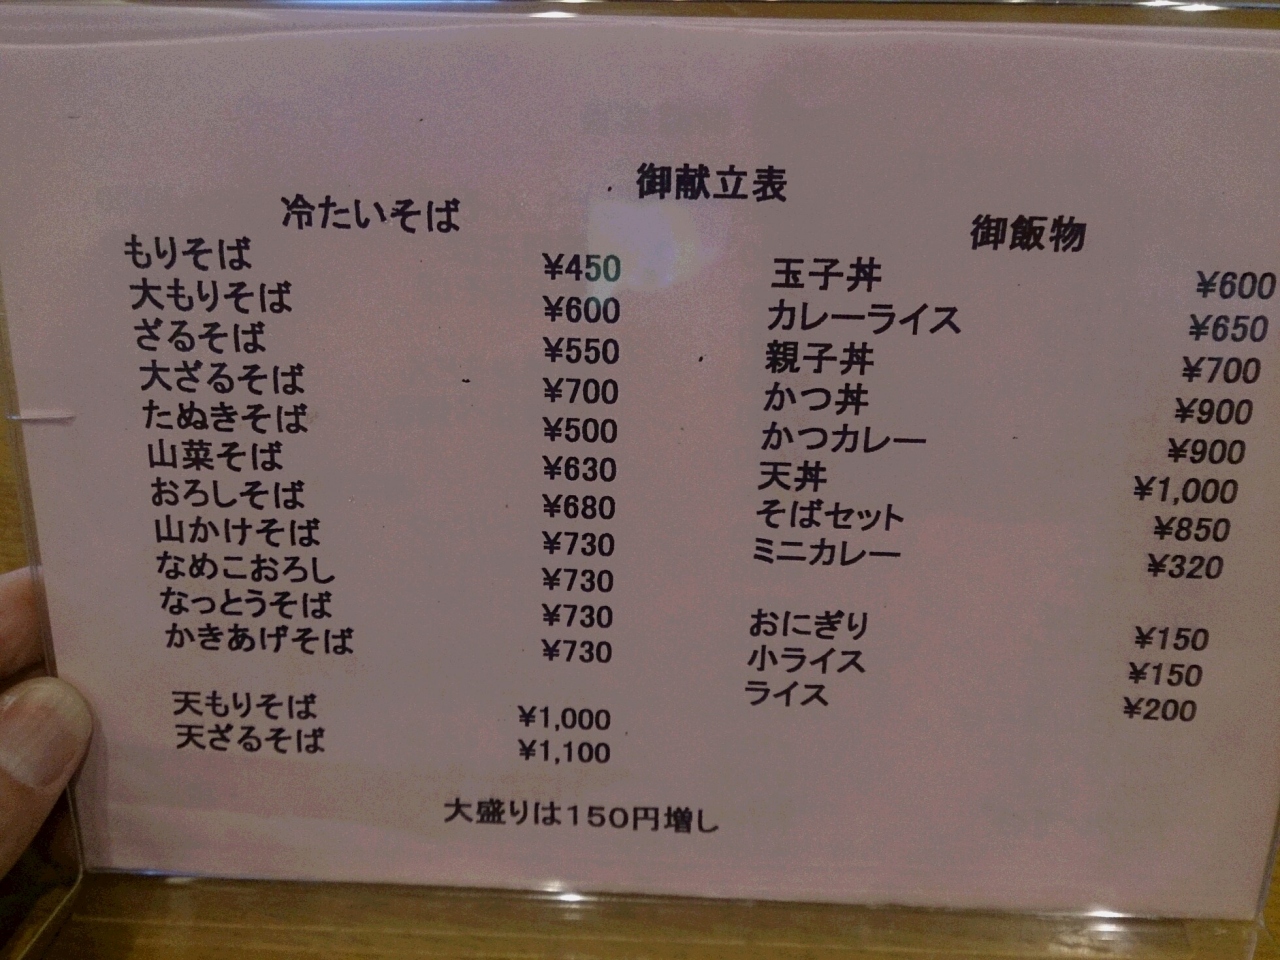 御献立表
冷たいそば
もりそば ¥450
大もりそば ¥600
ざるそば ¥550
大ざるそば ¥700
たぬきそば ¥500
山菜そば ¥630
おろしそば ¥680
山かけそば ¥730
なめこおろし ¥730
なっとうそば ¥730
かきあげそば ¥730
天もりそば ¥1,000
天ざるそば ¥1,100
御飯物
玉子丼 ¥600
カレーライス ¥650
親子丼 ¥700
かつ丼 ¥900
かつカレー ¥900
天丼 ¥1,000
そばセット ¥850
ミニカレー ¥320
おにぎり ¥150
小ライス ¥150
ライス ¥200
大盛りは150円増し